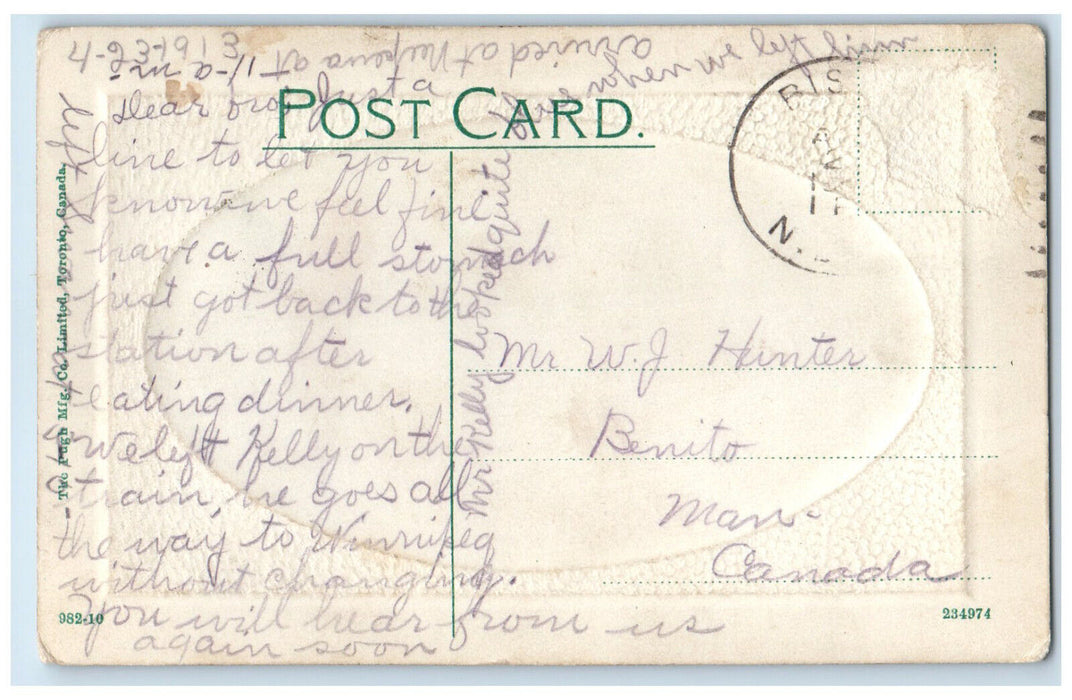 4-23-1913
POST CARD.
Dear bro Just a
line to let you
know we feel fine
have a full stomach
just got back to the
station after
eating dinner.
We left Kelly on the
train, he goes all
the way to Winnipeg
without changing.
You will hear from us
again soon
Mr Kelly looked quite
when we left him
arrived at
at 11-a-m-
left
Mr W. J Hunter
Benito
Man.
Canada
The Pugh Mfg. Co. Limited, Toronto, Canada.
982-10
234974
RIS
N.